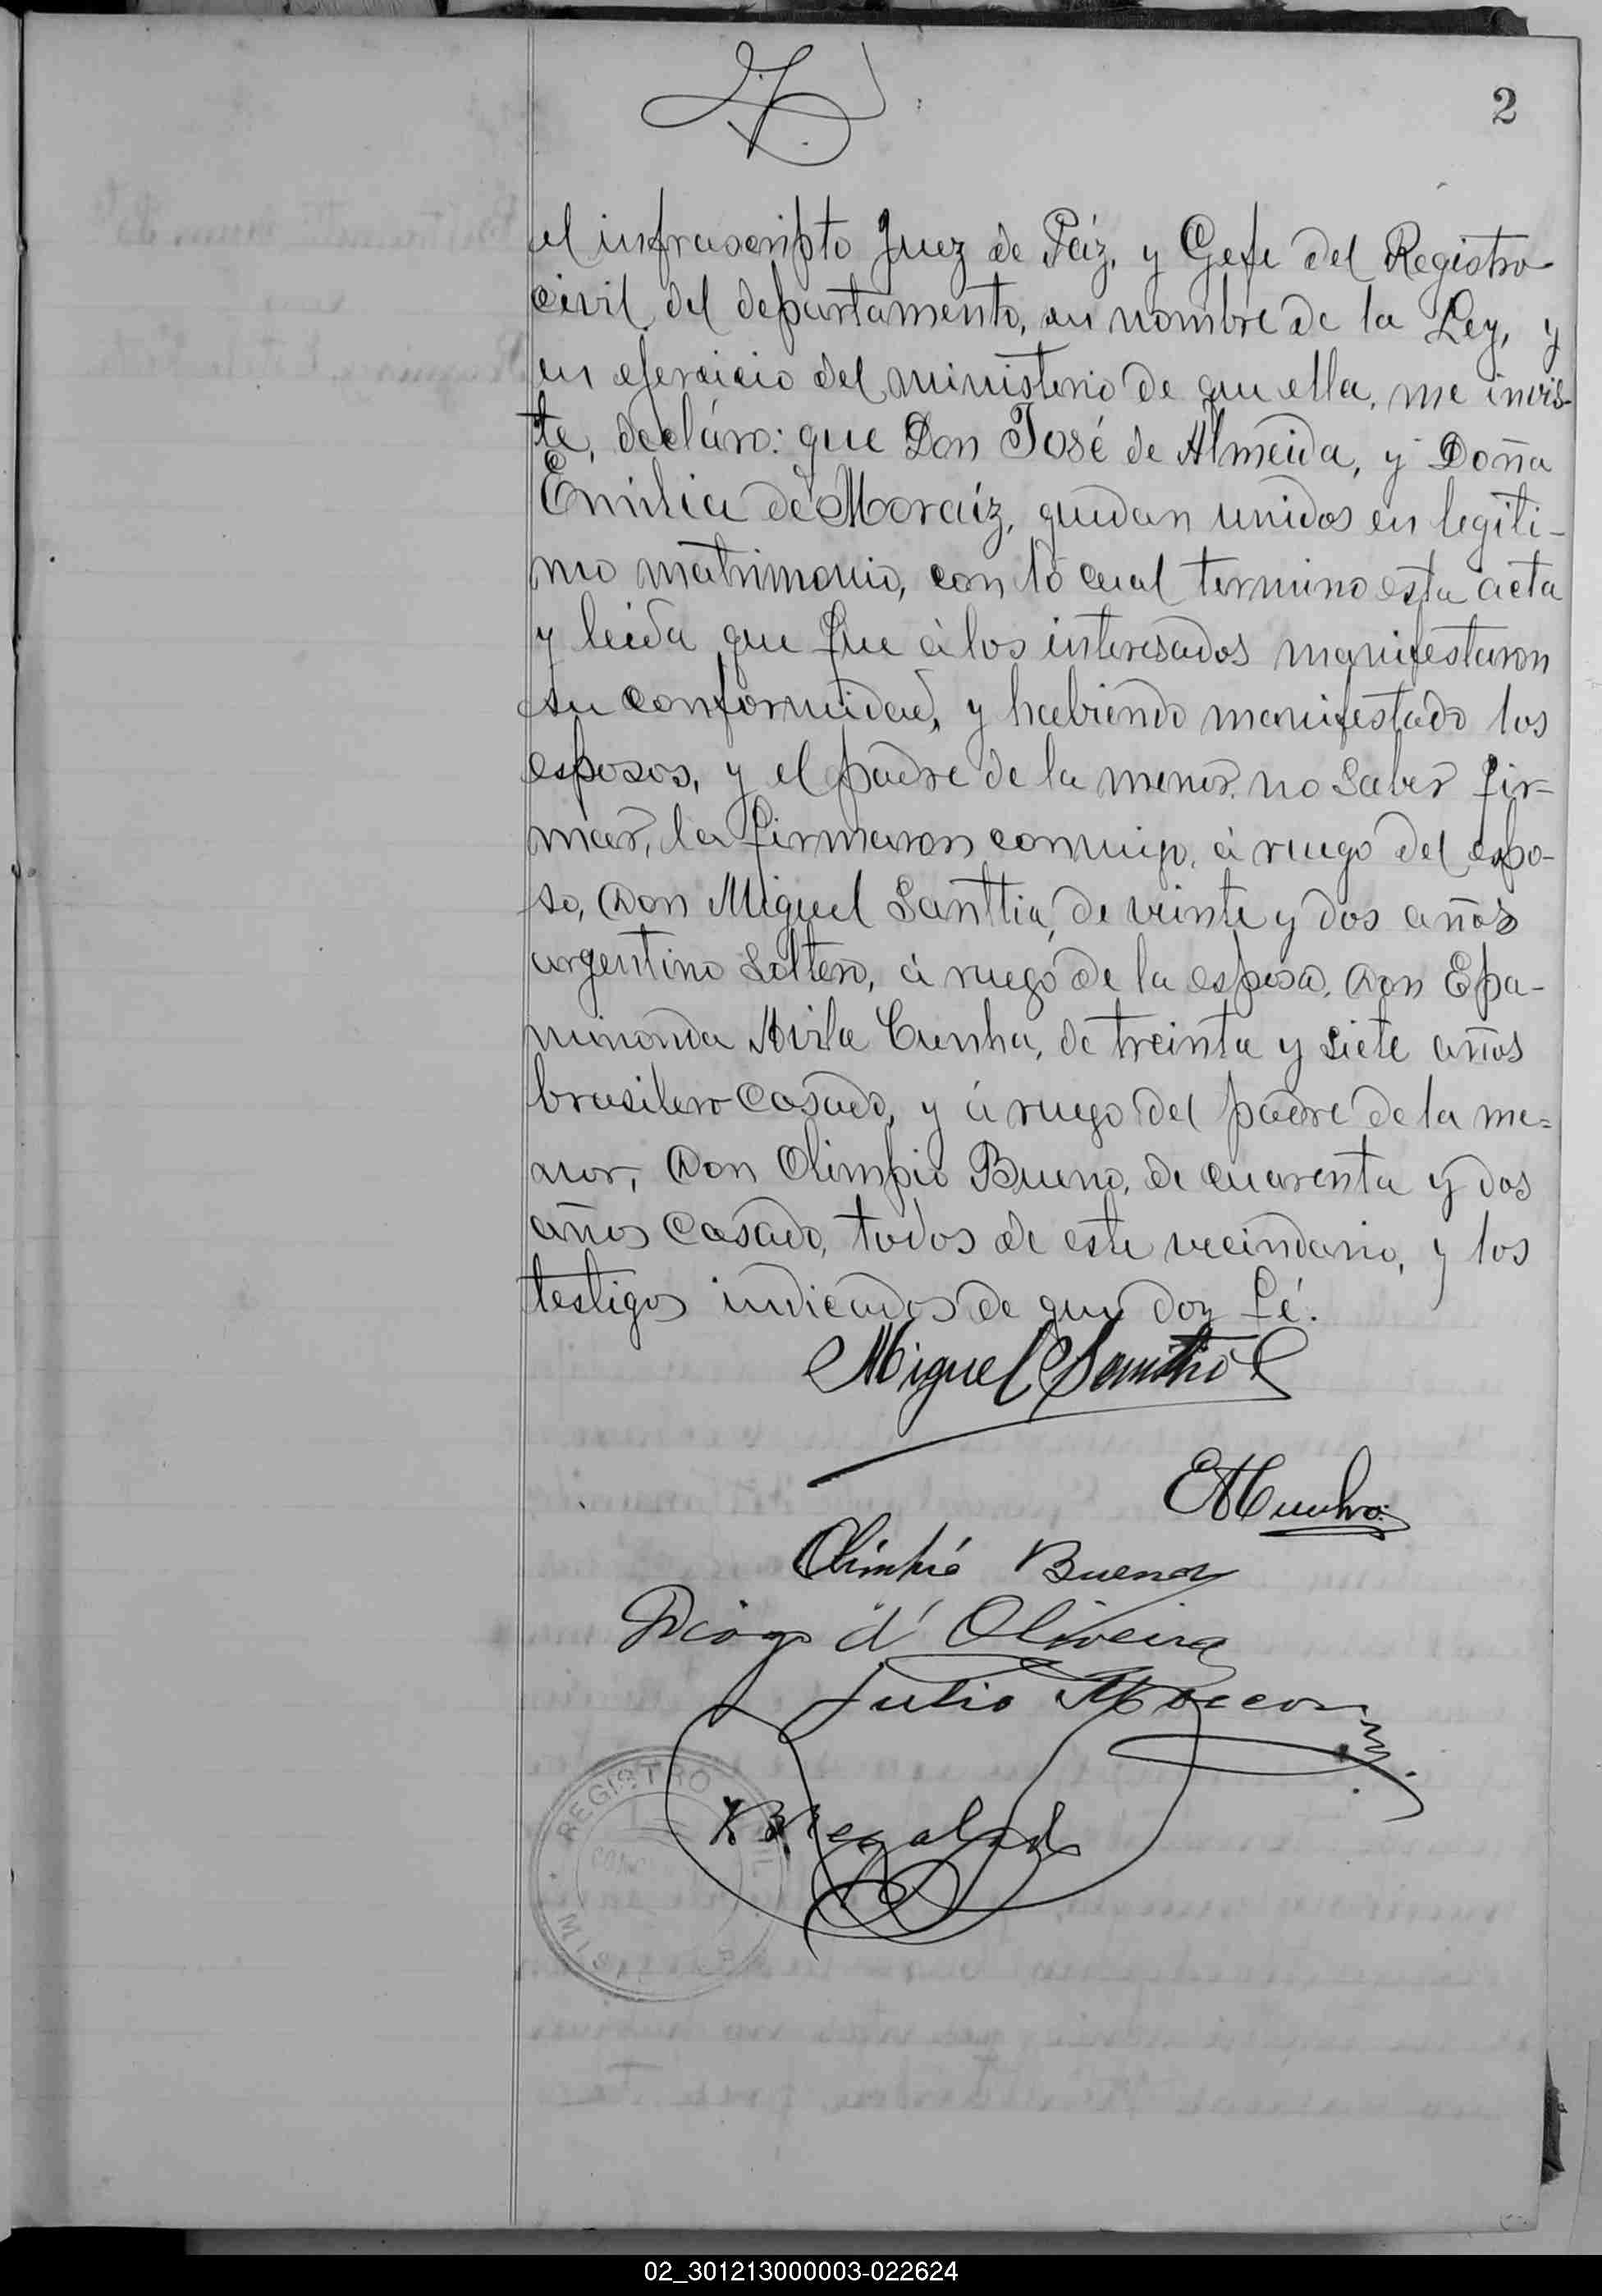 2
el infrascripto Juez de Páz, y Gefe del Registro
civil del departamento, en nombre de la Ley, y
en ejercicio del ministerio de que ella, me invis-
te, decláro: que Don José de Almeida, y Doña
Emilia de Moraíz, quedan unidos en legiti-
mo matrimonio, con lo cual termino esta acta
y leida que fue á los interesados manifestaron
su conformidad, y habiendo manifestado los
esposos, y el padre de la menor no saber fir=
mar, la firmaron conmigo, á ruego del espo-
so, Don Miguel Santtia, de veinte y dos años
argentino soltero, á ruego de la esposa, Don Epa-
minonda Avila Cunha, de treinta y siete años
brasilero casado, y á ruego del padre de la me=
nor, Don Olimpio Bueno, de cuarenta y dos
años casado, todos de este vecindario, y los
testigos indicados de que doy fé.
Miguel Santtia
EACunha
Olimpio Bueno
Diogo d' Oliveira
Julio
REGISTRO CIVIL
MISIONES
02_301213000003-022624